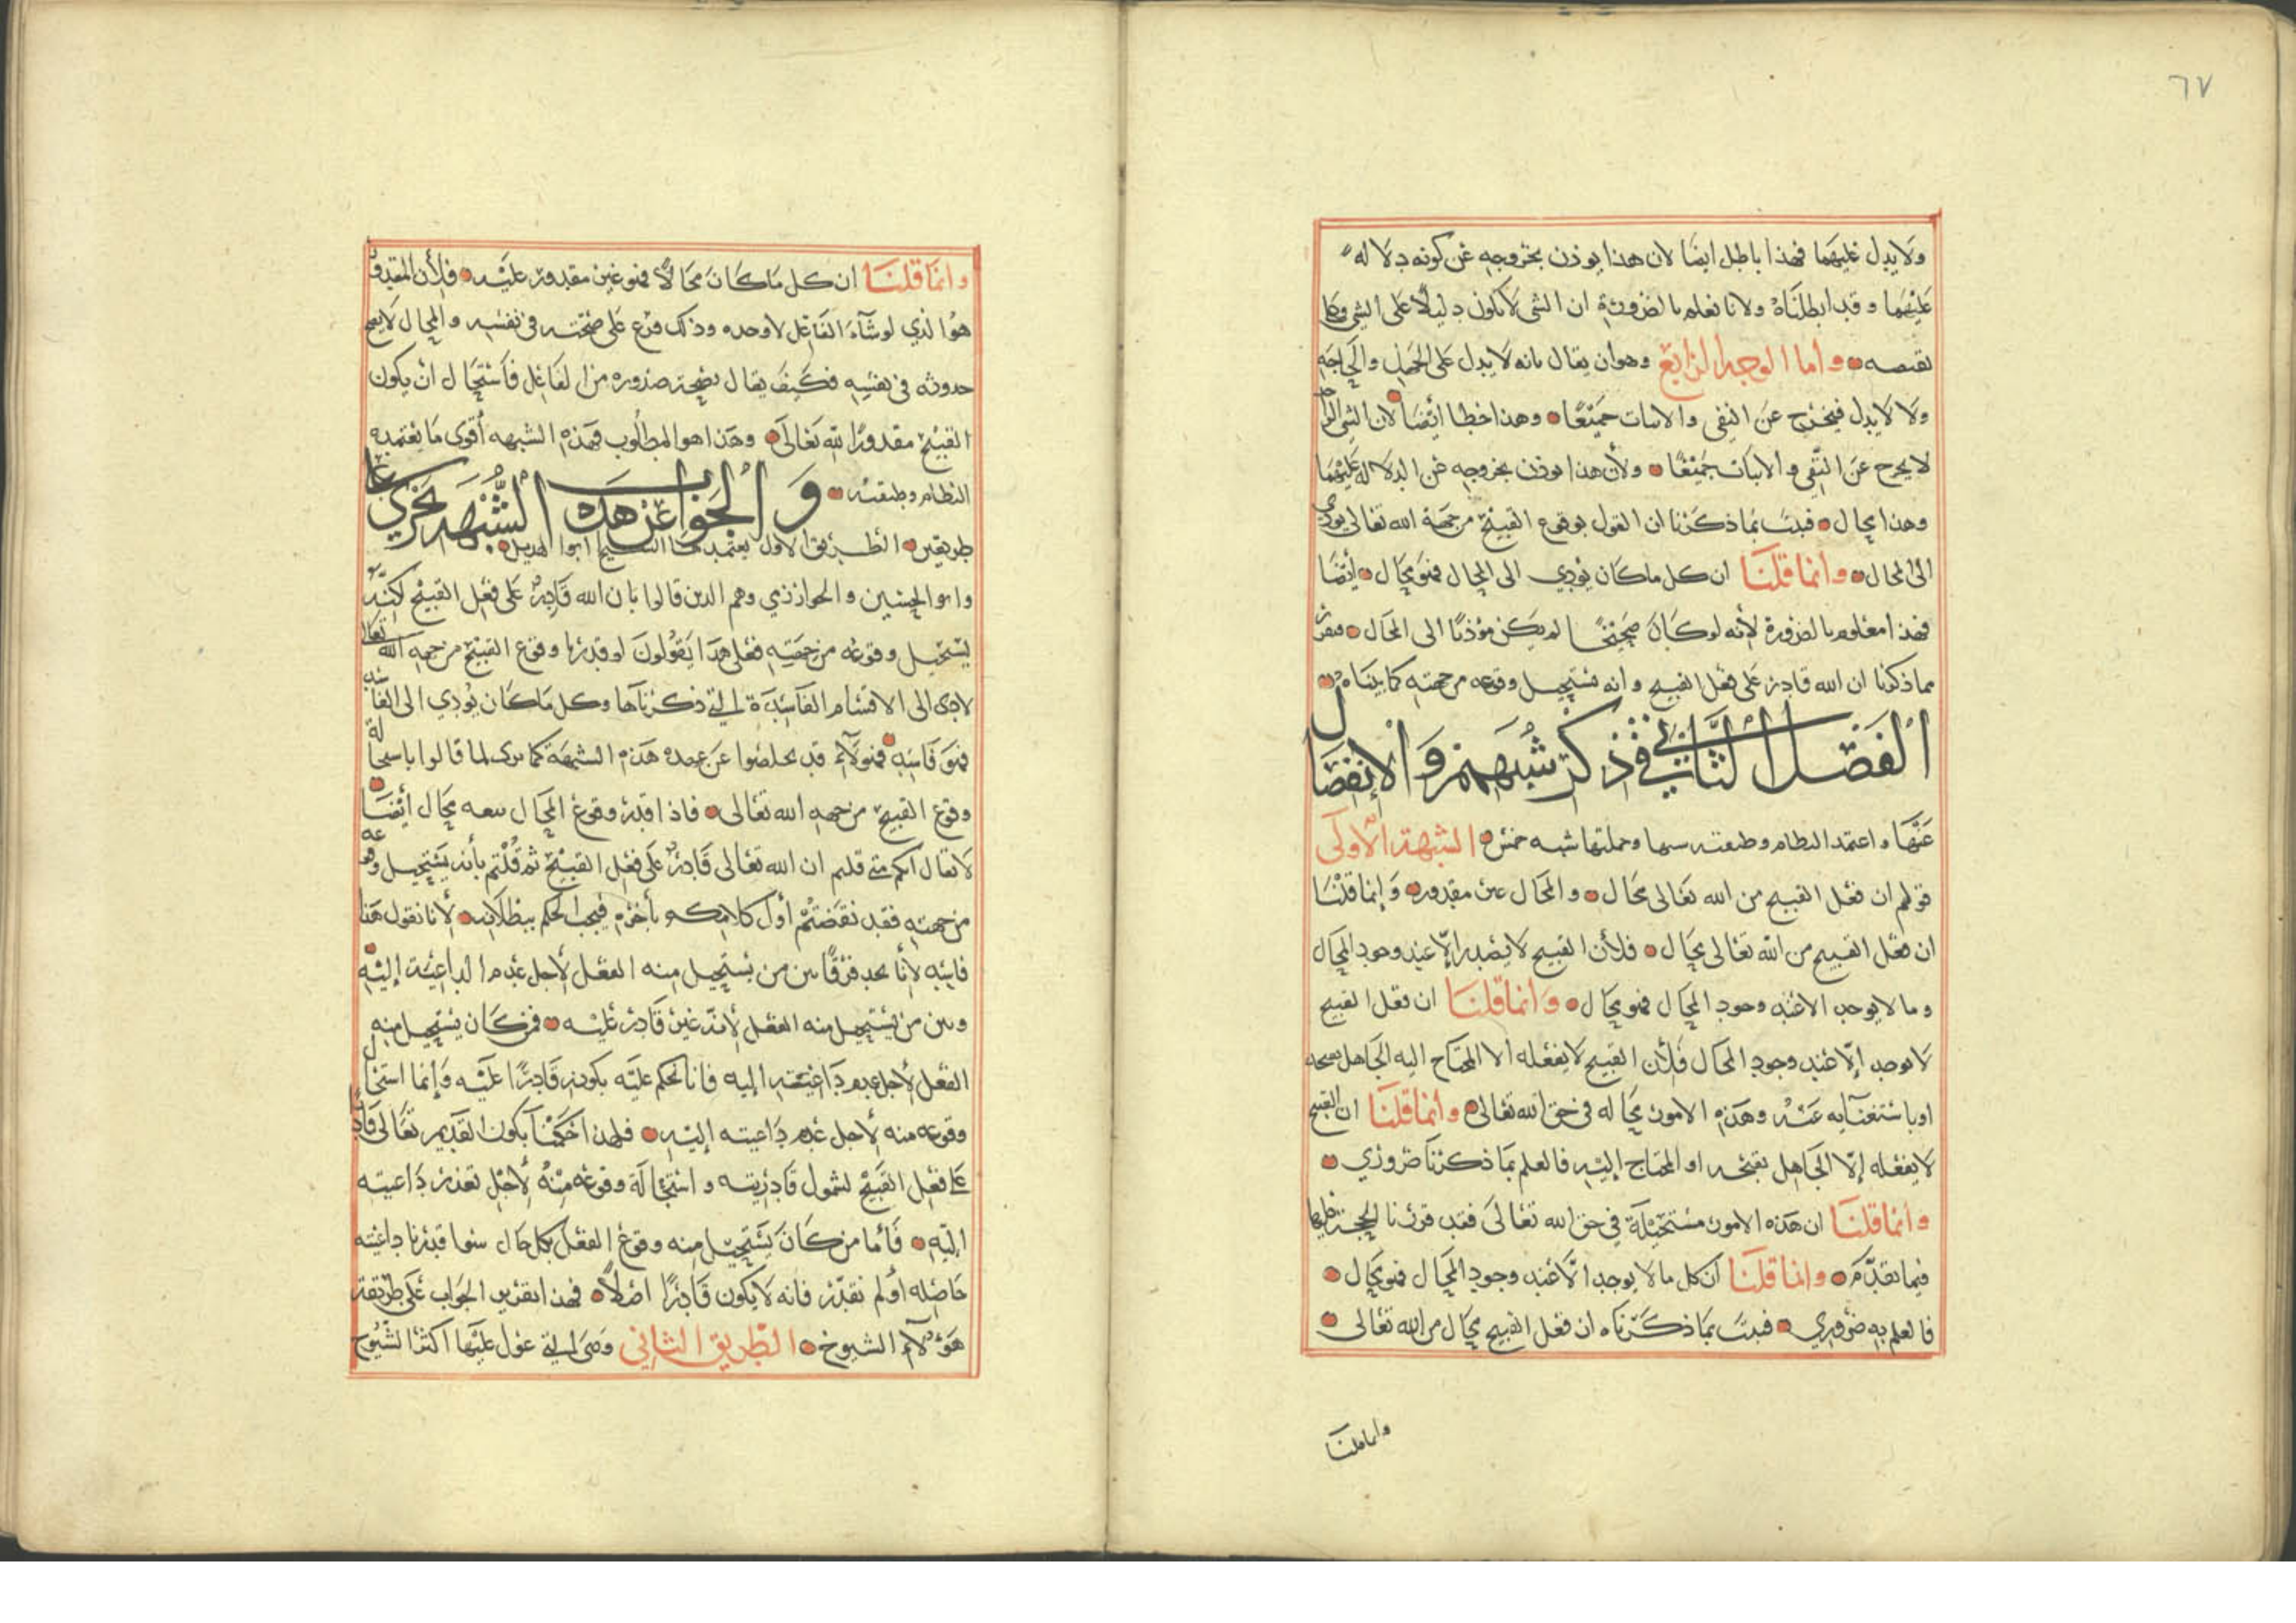 ٦٧
ولا يدل عليهما فهذا باطل ايضا لان هذا يوذن بخروجه عن كونه دلاله
عليهما وقد ابطلناه ولانا نعلم بالضرورة ان الشي لا يكون دليلا على الشي وعلى
نقيضه وأما الوجه الرابع وهو ان يقال بانه لا يدل على الجهل والحاجه
ولا لا يدل فيخرج عن النفى والاثبات جميعًا وهذا خطا ايضا لان الشي الواحد
لا يخرج عن النفي والاثبات جميعًا ولأن هذا يوذن بخروجه عن الدلاله عليهما
وهذا محال فثبت بما ذكرنا ان القول بوقوع القبيح من جهة الله تعالى يودي
الى المحال وانما قلنا ان كل ماكان يودي الى المحال فهو محال ايضا
فهذا معلوم بالضرورة لأنه لو كان صحيحًا لم يكن مؤديًا الى المحال فتقرر
مما ذكرنا ان الله قادر على فعل القبيح وانه يستحيل وقوعه من جهته كما بيناه
الفصل الثاني في ذكر شبههم والانفصال
عنها واعتمد النظام وطبقته شبها وجملتها شبه خمس الشبهة الأولى
قولهم ان فعل القبيح من الله تعالى محال والمحال غير مقدور وإنما قلنا
ان فعل القبيح من الله تعالى محال فلأن القبيح لا يصدر إلا عند وجود المحال
وما لا يوجد الا عند وجود المحال فهو محال وانما قلنا ان فعل القبيح
لا يوجد إلا عند وجود المحال فلأن القبيح لا يفعله الا المحتاج اليه الجاهل بقبحه
او باستغنآيه عنه وهذه الامور محاله في حق الله تعالى وانما قلنا ان القبيح
لا يفعله إلا الجاهل بقبحه او المحتاج إليه فالعلم بما ذكرنا ضروري
وانما قلنا ان هذه الامور مستحيلة في حق الله تعالى فقد قررنا الحجة عليها
فيما تقدم وانما قلنا أن كل ما لا يوجد الا عند وجود المحال فهو محال
فالعلم به ضروري فثبت بما ذكرناه ان فعل القبيح محال من الله تعالى
وانما قلنا
وانما قلنا ان كل ما كان محالا فهو غير مقدور عليه فلأن المقدور
هو الذي لو شآء الفاعل لاوجده وذلك فرع على صحته في نفسه والمحال لا يصح
حدوثه في نفسه فكيف يقال بصحة صدوره من الفاعل فاستحال ان يكون
القبيح مقدورا لله تعالى وهذا هو المطلوب فهذه الشبهه أقوى ما يعتمده
النظام وطبقته والجواب عن هذه الشبهه يجري على
طريقين الطريق الاول يعتمدها الشيخ ابوا الهذيل
وابو الحسين والخوارزمي وهم الذين قالوا بان الله قادر على فعل القبيح لكنه
يستحيل وقوعه من جهته فعلى هذا يقولون لو قدرنا وقوع القبيح من جهه الله تعالى
لادى الى الاقسام الفاسدة التي ذكرناها وكل ما كان يودي الى الفاسد
فهو فاسد فهولآء قد تخلصوا عن عهده هذه الشبهة كما ترى لما قالوا باستحالة
وقوع القبيح من جهه الله تعالى فاذا قدر وقوع المحال تبعه محال أيضا
لا يقال انكم متى قلتم ان الله تعالى قادر على فعل القبيح ثم قلتم بأنه يستحيل وقوعه
من جهته فقد نقضتم أول كلامكم بأخره فيجب الحكم ببطلانه لأنا نقول هذا
فاسد لأنا نجد فرقا بين من يستحيل منه الفعل لأجل عدم الداعية إليه
وبين من يستحيل منه الفعل لأنه غير قادر عليه فمن كان يستحيل منه
الفعل لأجل عدم داعيته إليه فانا نحكم عليه بكونه قادرًا عليه وإنما استحال
وقوعه منه لأجل عدم داعيته إليه فلهذا حكمنا بكون القديم تعالى قادرًا
على فعل القبيح لشمول قادريته واستحالة وقوعه منه لأجل تعذر داعيته
اليه فأما من كان يستحيل منه وقوع الفعل بكل حال سوا قدرنا داعيته
حاصله أو لم نقدر فانه لا يكون قادرًا اصلا فهذا تقرير الجواب على طريقة
هؤلآء الشيوخ الطريق الثاني وهي التي عول عليها اكثر الشيوخ